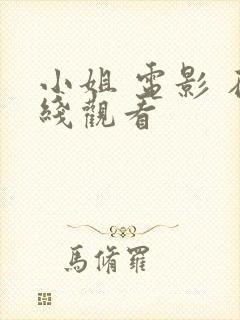 小姐 電影 在
綫觀看
馬脩羅